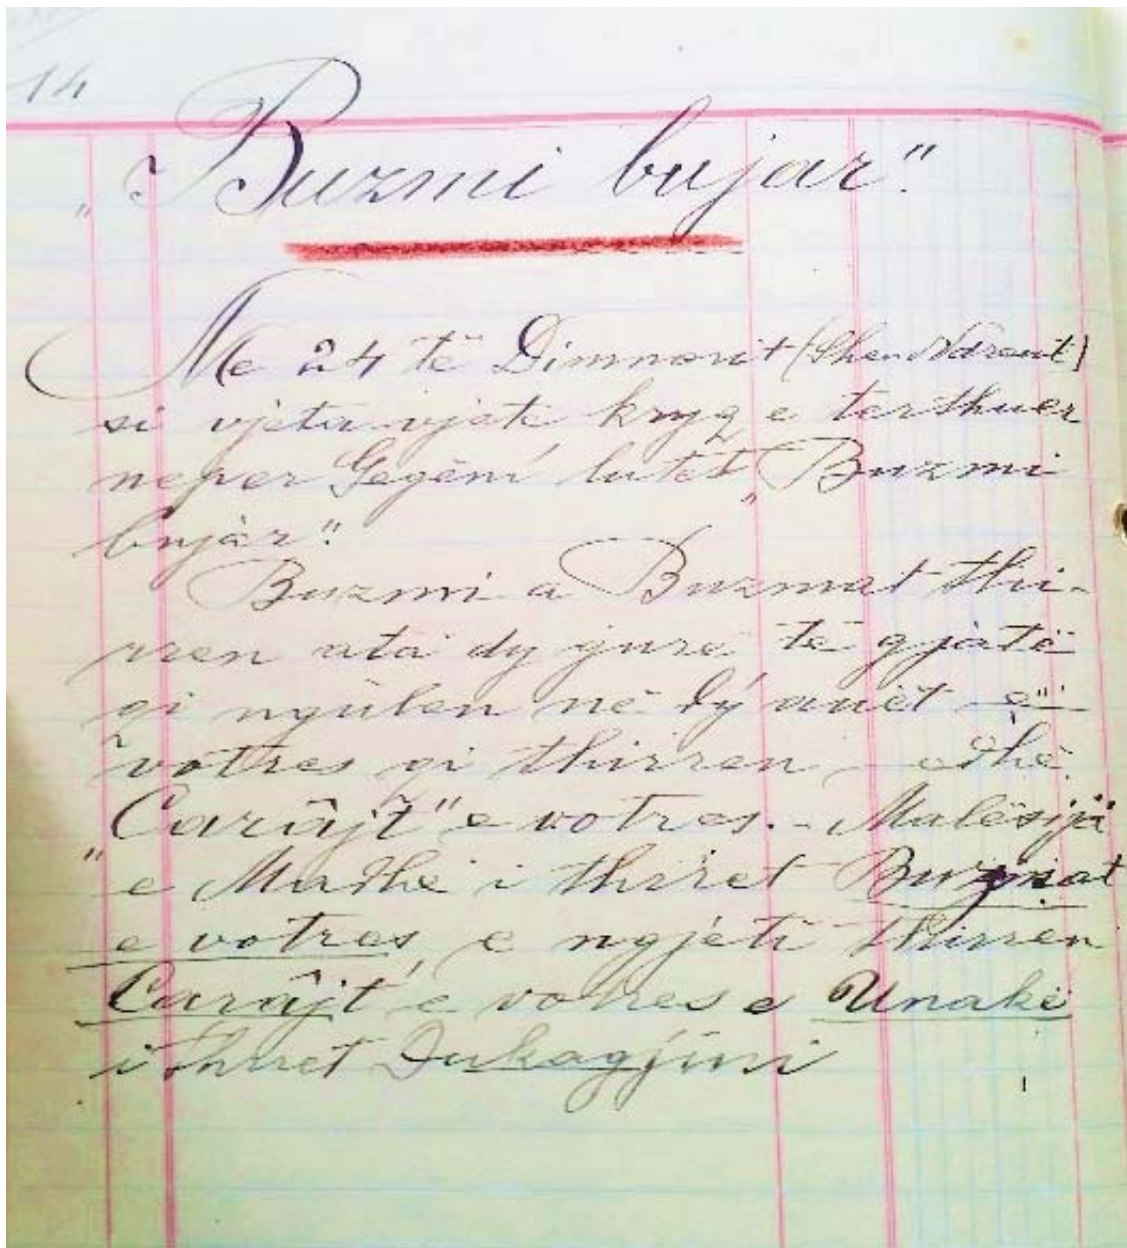 14
„Buzmi bujar"
Me 24 të Dimnorit (Shen Ndreut)
si vjeta vjetë kryq e terthuer
neper Gegëní lutet „Buzmi
bujàr"
Buzmi a Buzmat thi-
rren ata dy gurë të gjatë
qi ngulen në dý anët e
votres qi thirren edhè
„Carâjt" e votres. - Malësija
e Madhe i thrret Buzmat
e votres, e ngjeti thirren
Carâjt e votres e Unakë
i thrret Dukagjini